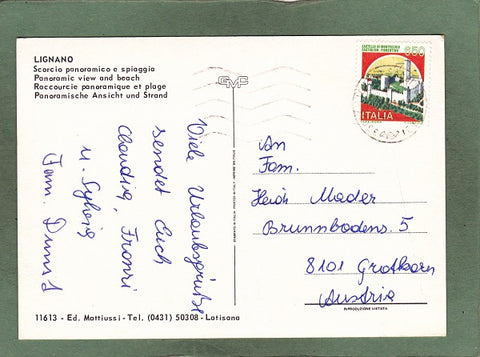 LIGNANO
Scorcio panoramico e spiaggia
Panoramic view and beach
Raccourcie panoramique et plage
Panoramische Ansicht und Strand
Viele Urlaubsgrüße
sendet Euch
Claudia, Franzi
u. Sylvia
Fam.
GMF
CASTELLO DI MONTECCHIO
CASTIGLION FIORENTINO
650
ITALIA
An
Fam.
Heidi Mader
Brunnbodens. 5
8101 Gratkorn
Austria
RIPRODUZIONE VIETATA
11613 - Ed. Mattiussi - Tel. (0431) 50308 - Latisana